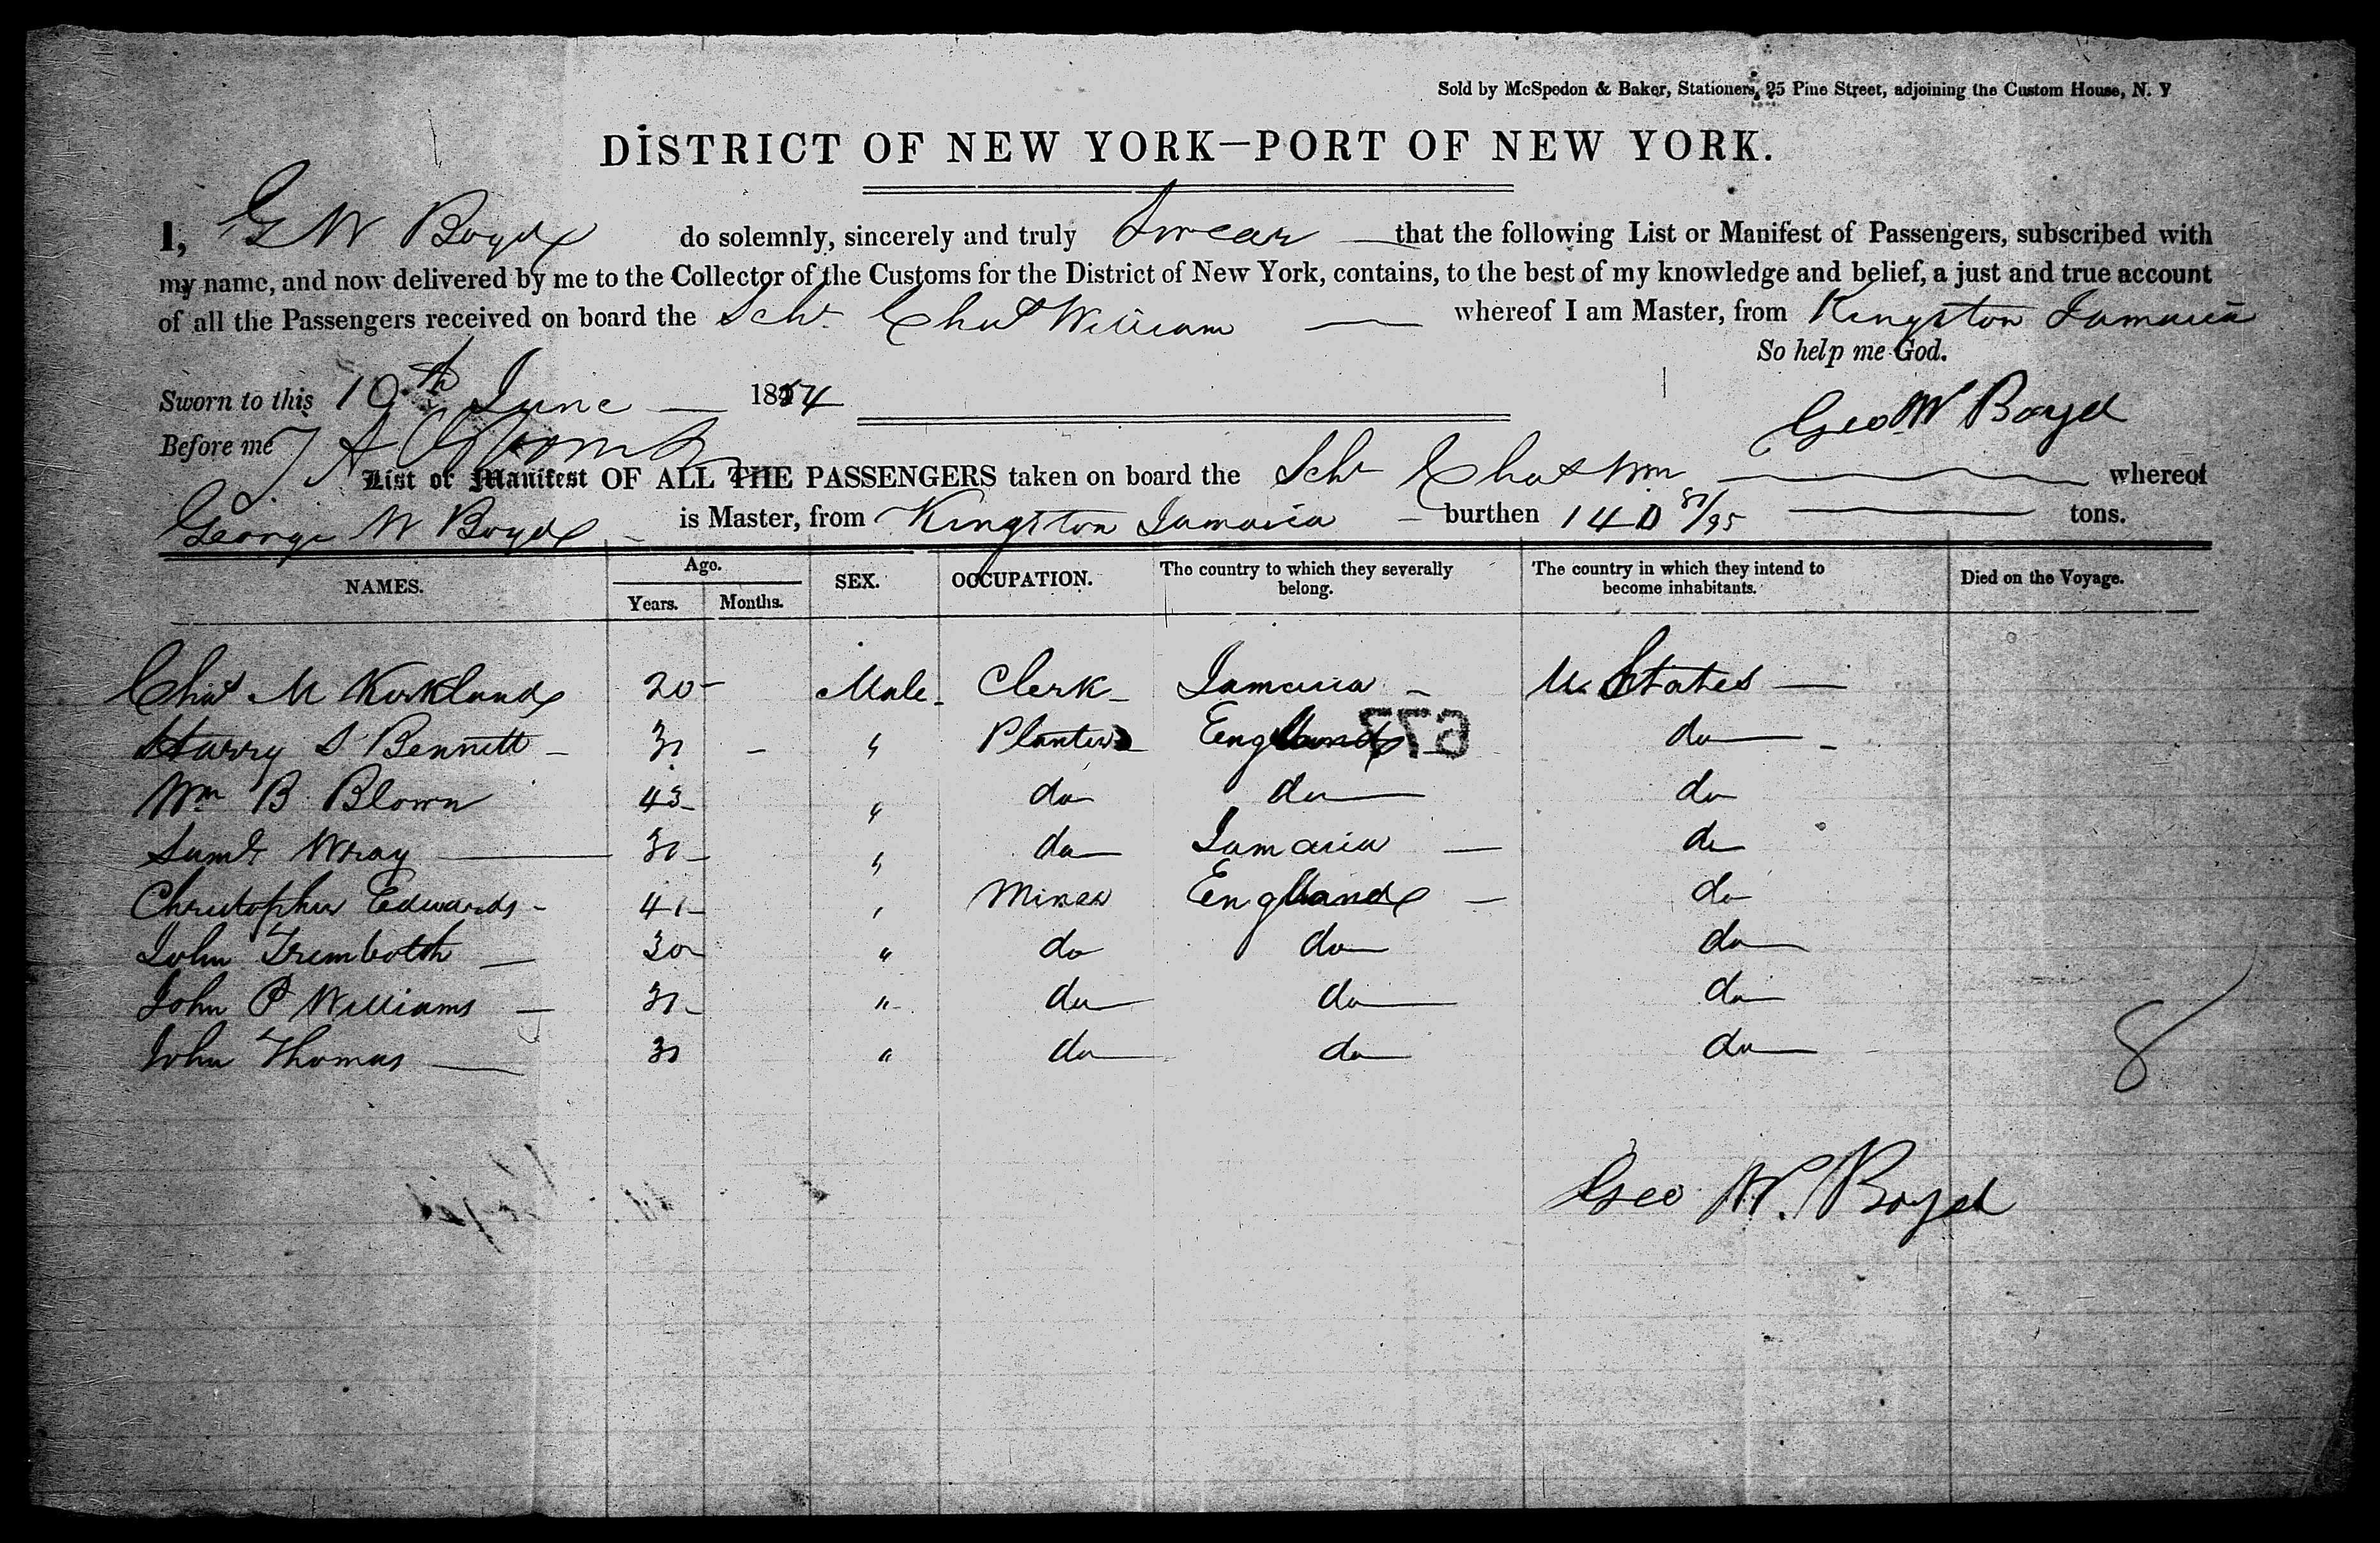 Sold by McSpedon & Baker, Stationers, 25 Pine Street, adjoining the Custom House, N. Y
DISTRICT OF NEW YORK—PORT OF NEW YORK.
I, G W Boyd do solemnly, sincerely and truly Swear that the following List or Manifest of Passengers, subscribed with
my name, and now delivered by me to the Collector of the Customs for the District of New York, contains, to the best of my knowledge and belief, a just and true account
of all the Passengers received on board the Schr Chas William whereof I am Master, from Kingston Jamaica
So help me God.
Sworn to this 19th June 1854
Geo W Boyd
Before me
List or Manifest OF ALL THE PASSENGERS taken on board the Schr Chas Wm whereof
George W Boyd is Master, from Kingston Jamaica burthen 140 81/95 tons.
NAMES. Age. Years. Months. SEX. OCCUPATION. The country to which they severally belong. The country in which they intend to become inhabitants. Died on the Voyage.
Chas M Kirkland 20 Male Clerk Jamaica U. States
Harry S Bennett 31 " Planter England do
677
Wm B Blown 43 " do do do
Saml Wray 30 " do Jamaica do
Christopher Edwards 41 " Miner England do
John Trembolth 30 " do do do
John P Williams 31 " do do do
John Thomas 31 " do do do
8
Geo W. Boyd